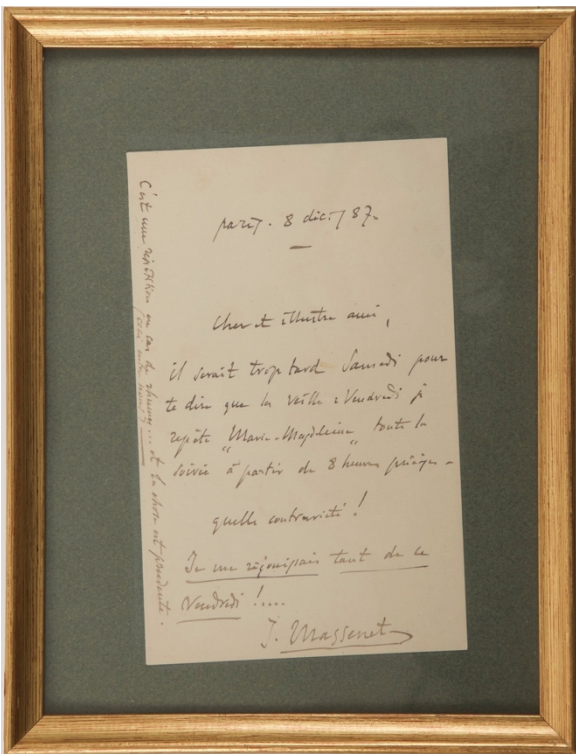 Paris. 8 déc. / 87.
Cher et illustre ami,
il serait trop tard Samedi pour
te dire que la veille = Vendredi je
répète "Marie-Magdeleine" toute la
soirée à partir de 8 heures précises -
quelle contrariété !
Je me réjouissais tant de ce
Vendredi !....
J. Massenet
C'est une répétition en cas de rhume ... et la chose est prudente.
(ceci entre nous)